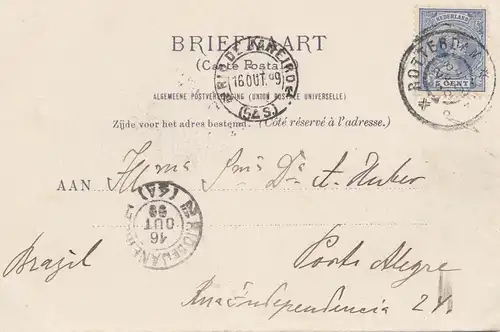 NEDERLAND
5 CENT
ROTTERDAM
BRIEFKAART
(Carte Postale)
RIO DE JANEIRO
16 OUT 99
ALGEMEENE POSTVEREENIGING (UNION POSTALE UNIVERSELLE)
Zijde voor het adres bestemd. (Côté réservé à l'adresse.)
AAN Exmo Snr Dr A. Huber
RIO DE JANEIRO
16
OUT
99
Brazil Porto Alegre
Rua Independencia 24